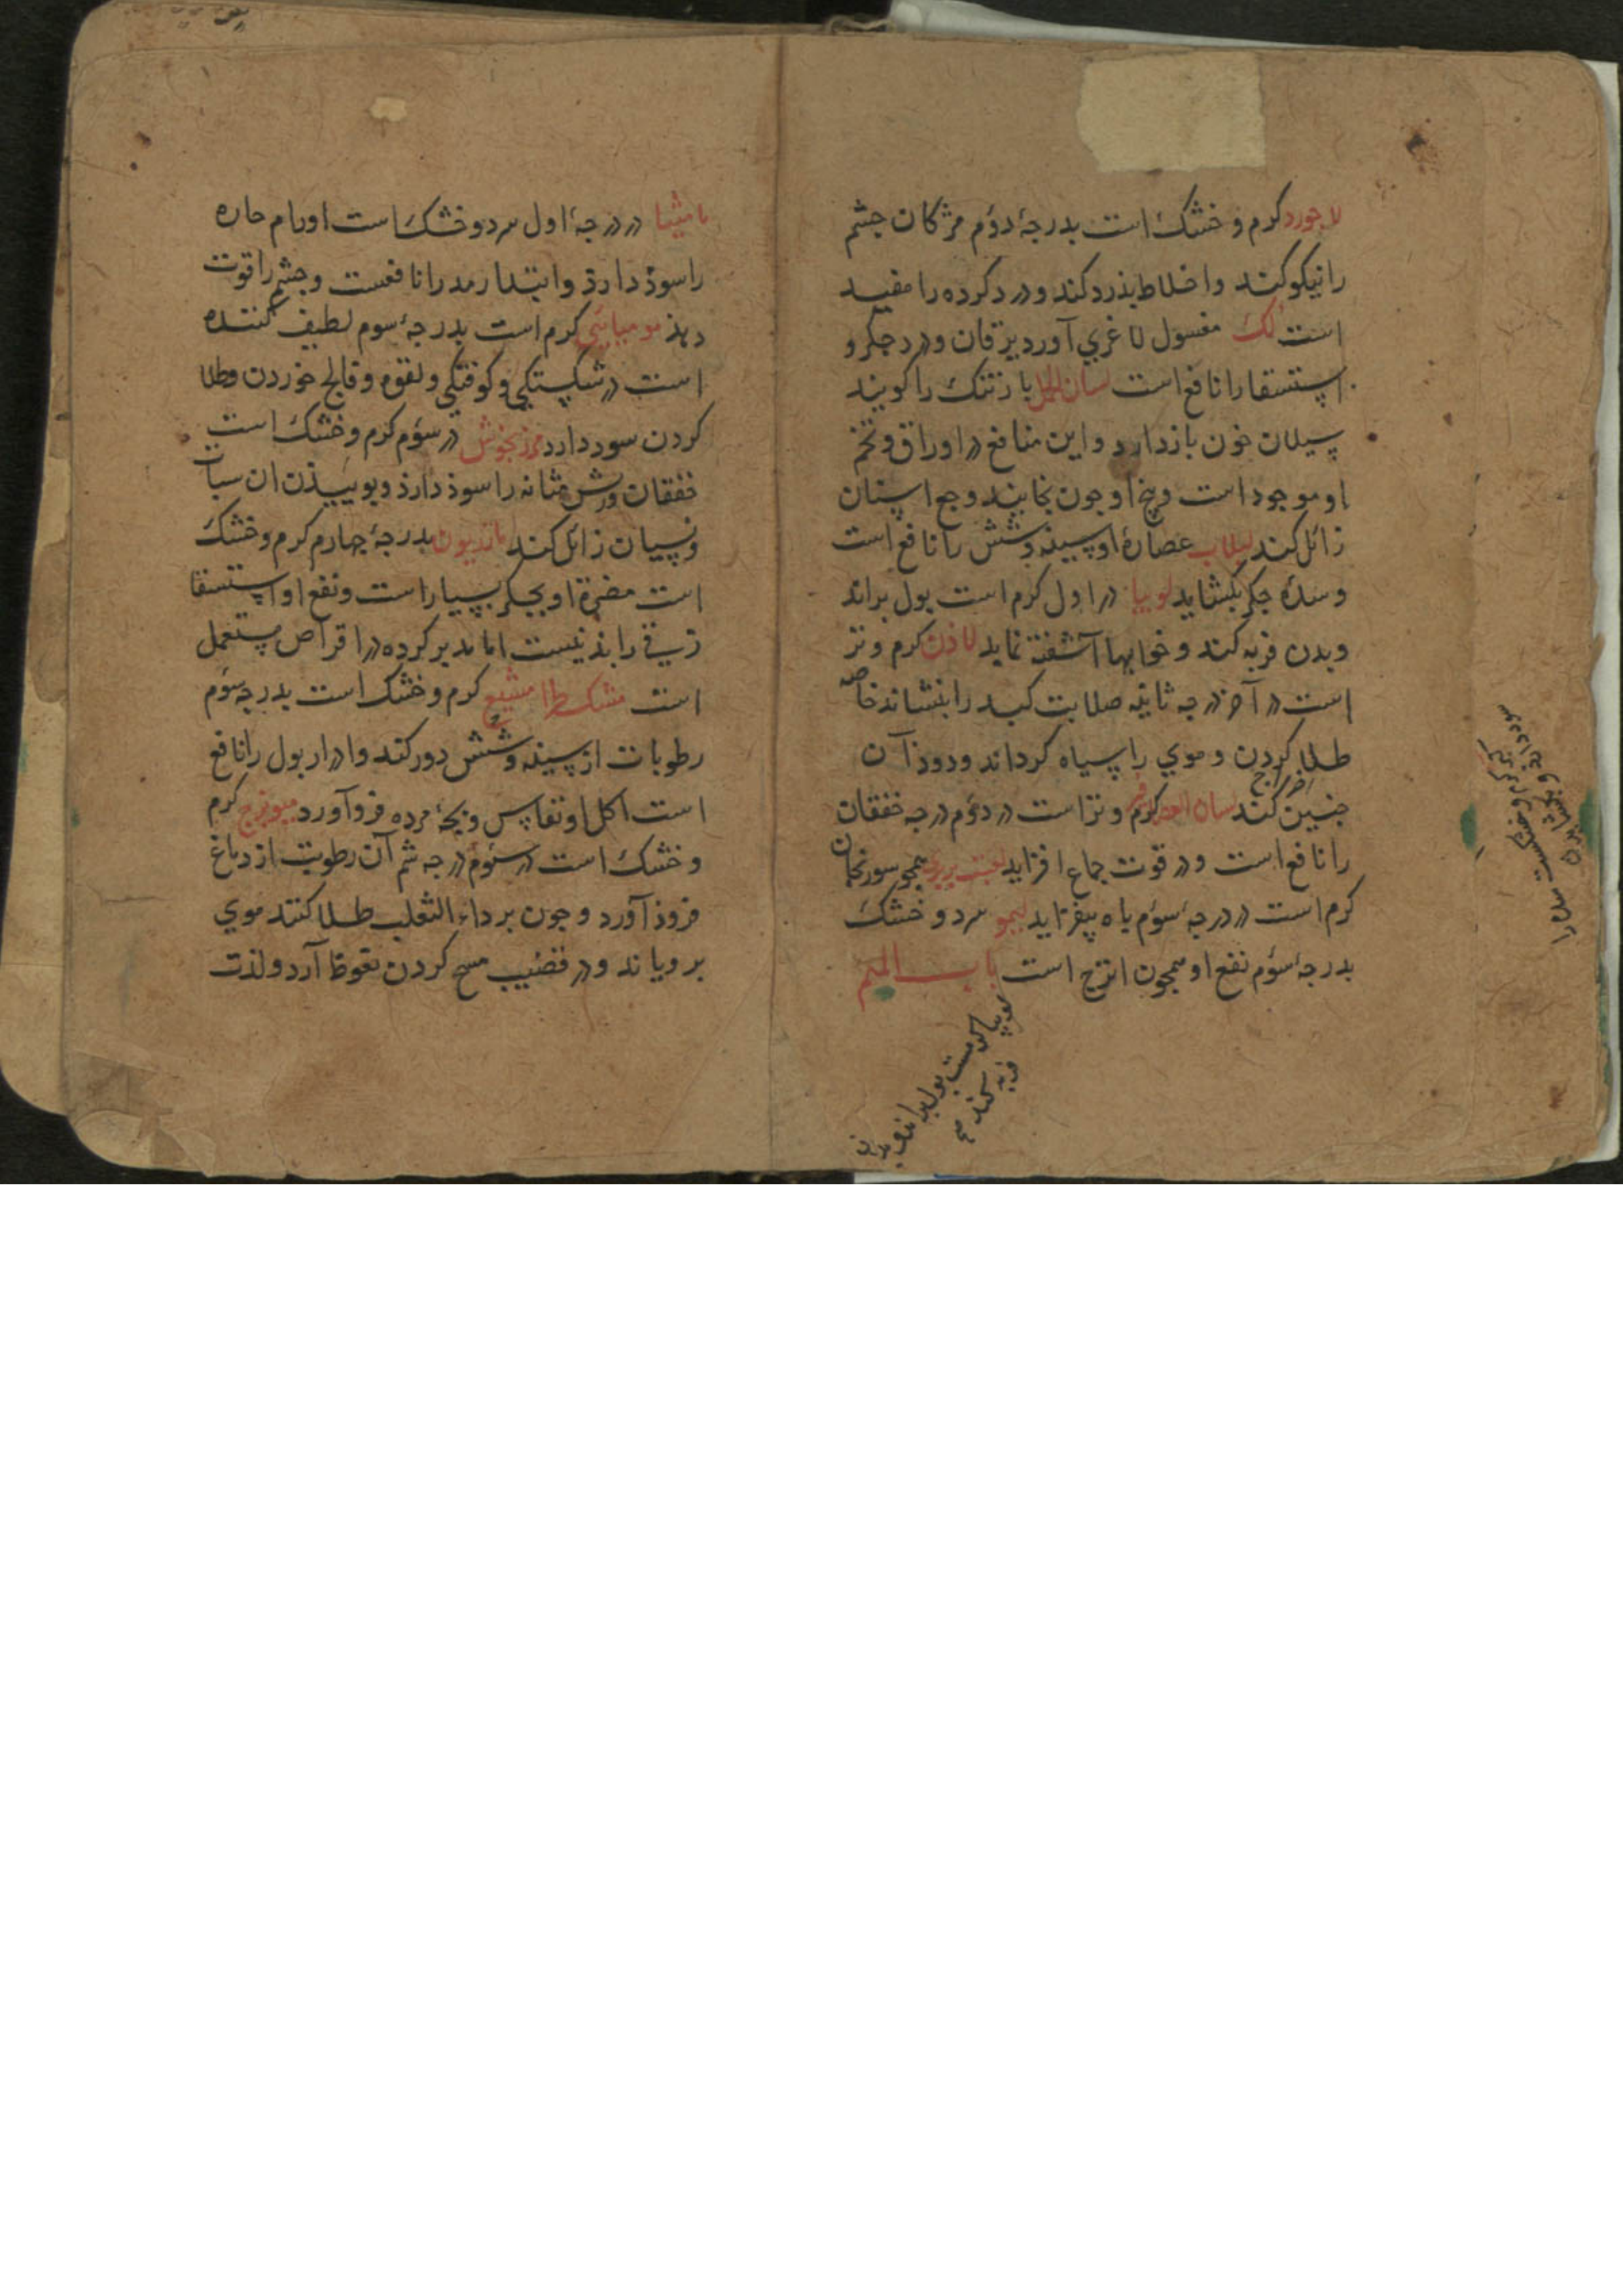 لاجورد کرم و خشک است بدرجهٔ دوم مژکان جشم
را نیکو کند واخلاط بذرد کند ودرد کرده را مفید
است لک مغسول لاغری آورد یرقان ودرد جکر و
استسقا را نافع است لسان الحمل بارتنک را کویند
سیلان خون بازدارد واین منافع در اوراق وتخم
او موجود است وبیخ او جون بخایند وجع اسنان
زائل کند لبلاب عصارهٔ او سینه وشش را نافع است
وسدهٔ جکر بکشاید لوبیا در اول کرم است بول براند
وبدن فربه کند وخوابها آشفته نماید لاذن کرم وتر
است در آخر درجه ثانیه صلابت کبد را بنشاند خاصه
طلا کردن وموی را سیاه کرداند ودود آن
اخراج
جنین کند لسان العصافیر کرم وتر است در دوم درجه خفقان
را نافع است ودر قوت جماع افزاید لعبت بربری همجو سورنجان
کرم است در درجهٔ سوم باه بیفزاید لیمو سرد وخشک
بدرجهٔ سوم نفع او همجون اترج است باب المیم
لوبیا کرمست بول براند وبدن
فربه کند
مامیثا در درجهٔ اول سرد وخشک است اورام حاره
را سوذ دارذ وابتدا رمد را نافعست وجشم را قوت
دهذ مومیائی کرم است بدرجهٔ سوم لطیف کننده
است در شکستکی وکوفتکی ولقوه وفالج خوردن وطلا
کردن سود دارد مرزنجوش در سوم کرم وخشک است
خفقان وریش مثانه را سوذ دارذ وبوئیذن ان سبات
ونسیان زائل کند مازریون بدرجهٔ جهارم کرم وخشک
است مضرة او بجکر بسیار است ونفع او استسقا
زقی را بذ نیست اما مدبر کرده در اقراص مستعمل
است مشکطرامشیع کرم وخشک است بدرجه سوم
رطوبات از سینه وشش دور کند وادرار بول را نافع
است اکل او نفاس وبجهٔ مرده فروآورد میویزج کرم
وخشک است در سوم درجه شم آن رطوبت از دماغ
فروذ آورد وجون بر داء الثعلب طلا کنند موی
برویاند ودر قضیب مسح کردن نعوظ آرد ولذت